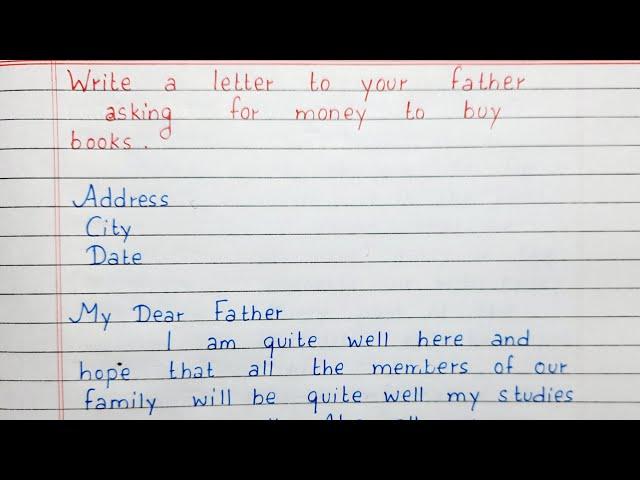 Write a letter to your father
asking for money to buy
books.
Address
City
Date
My Dear Father
I am quite well here and
hope that all the members of our
family will be quite well my studies